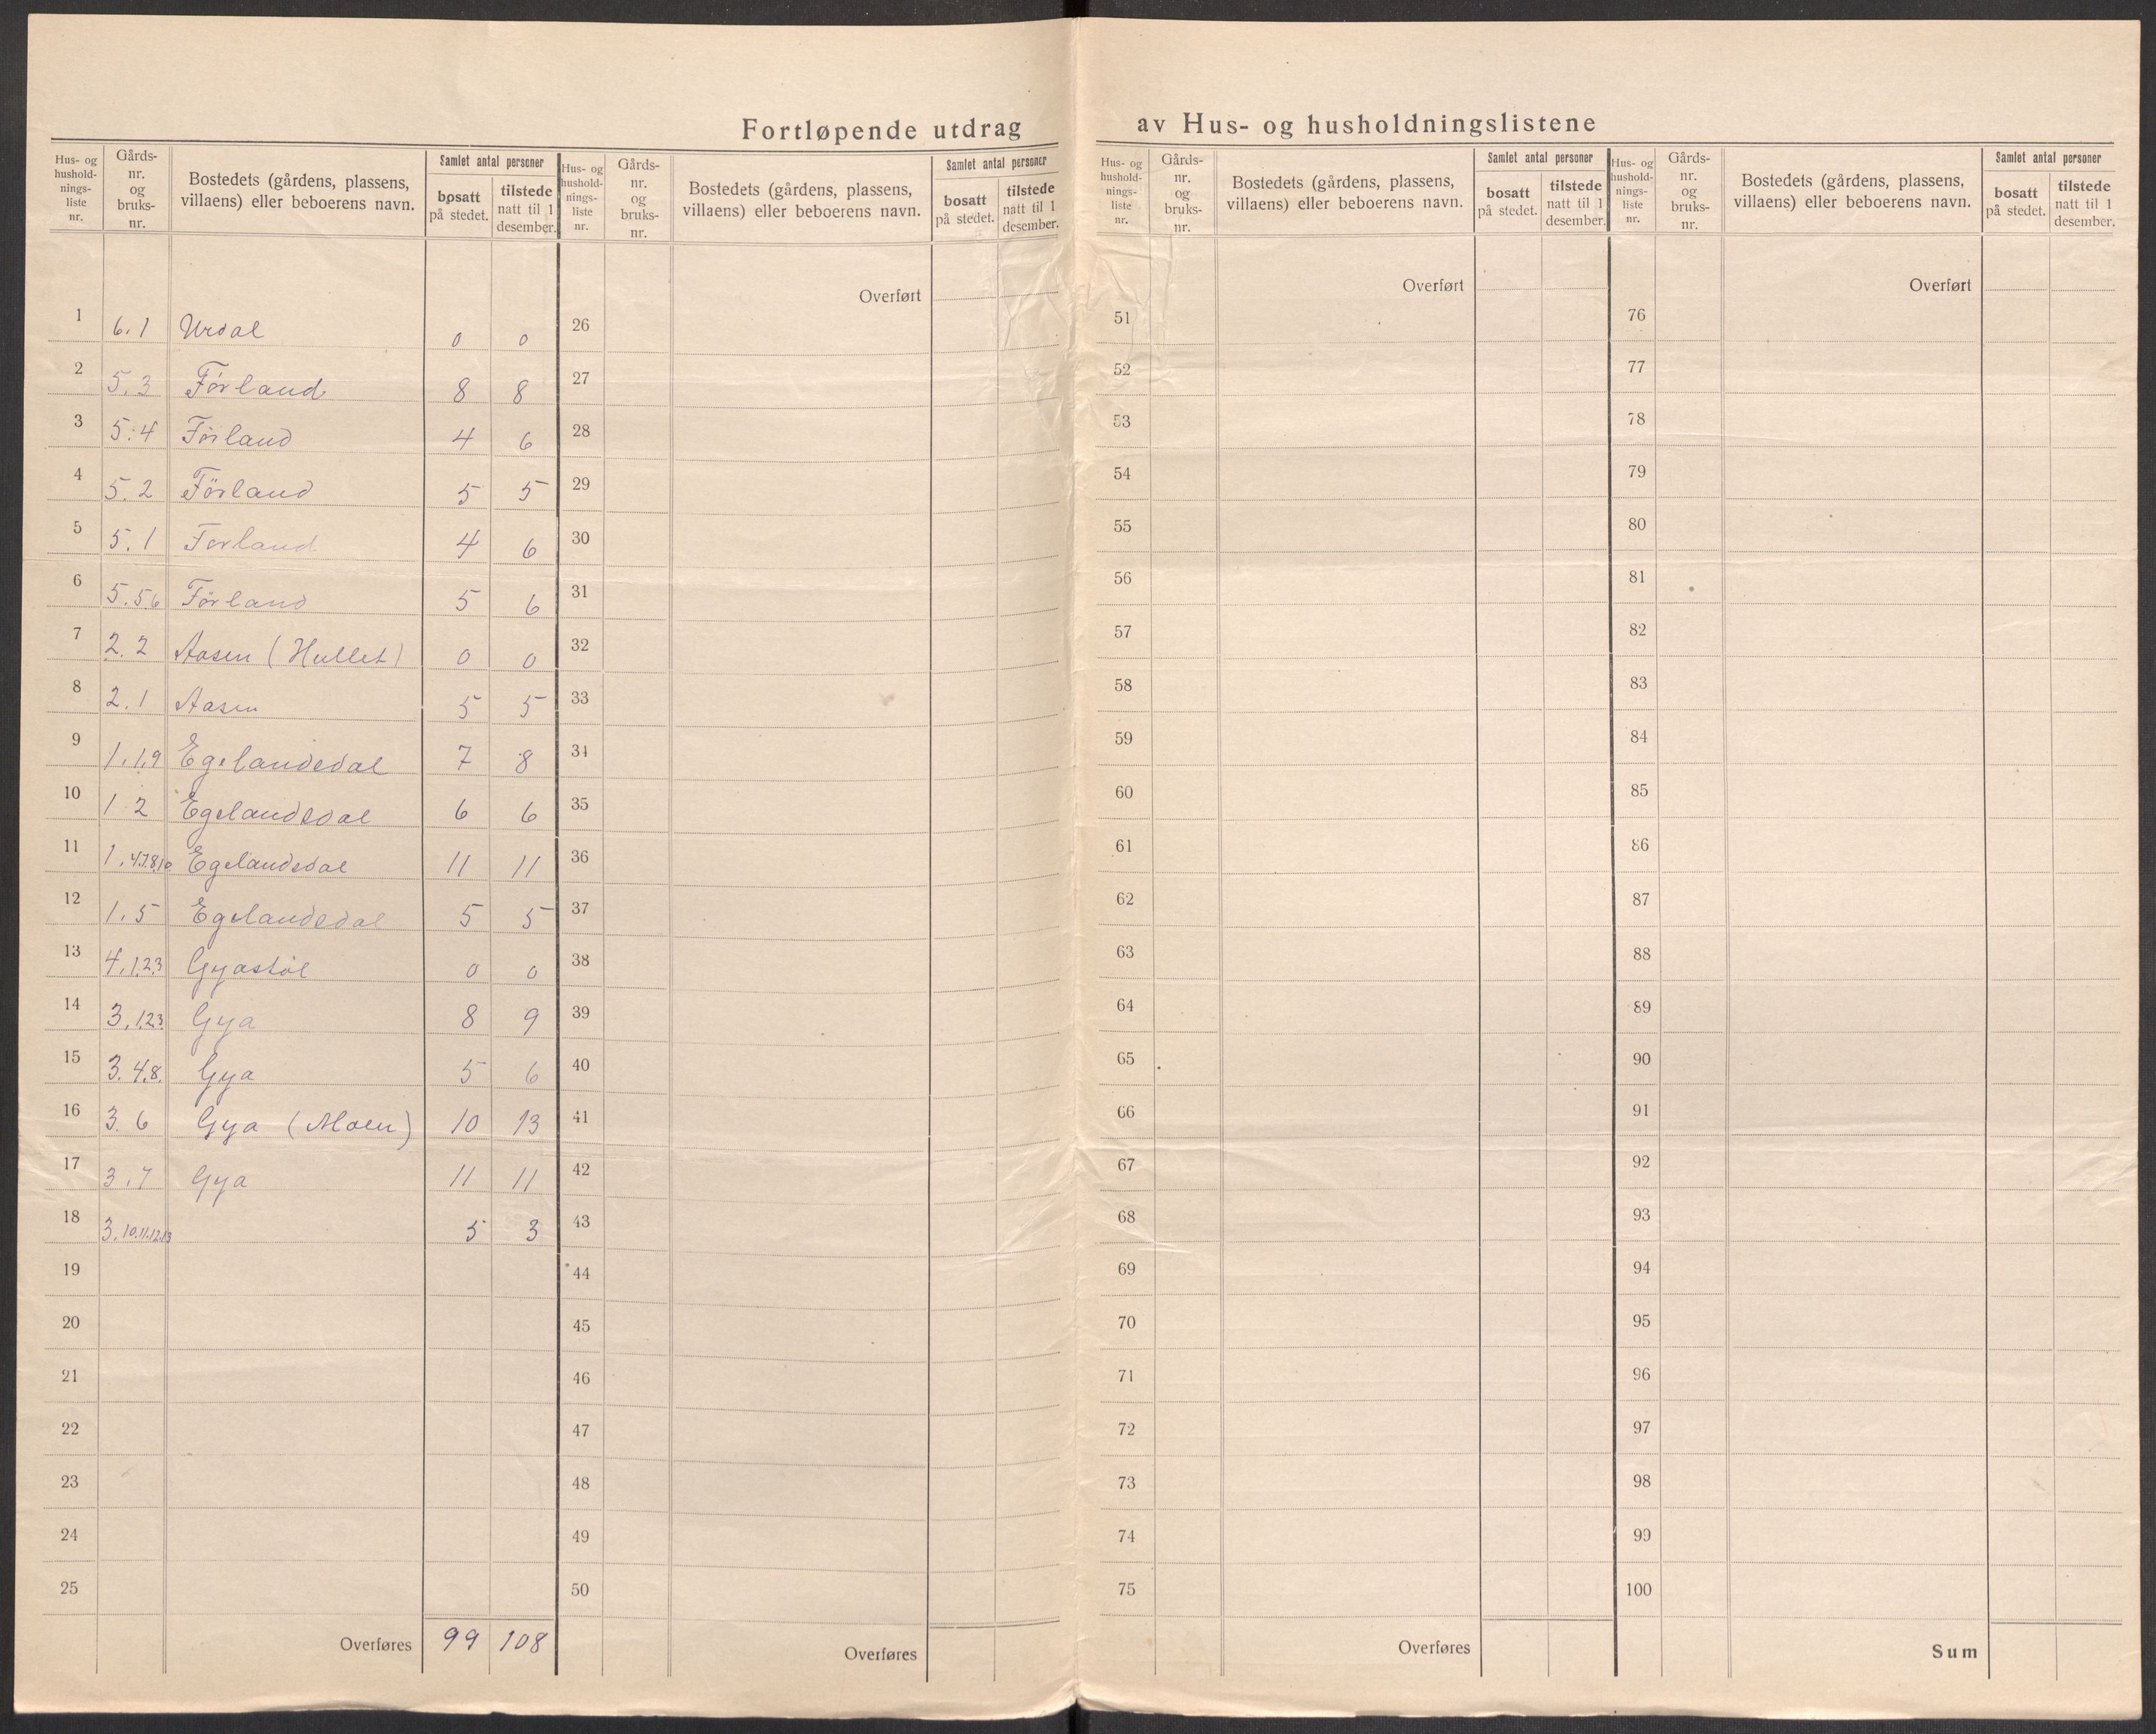 Fortløpende utdrag av Hus- og husholdningslistene
Hus- og hushold-nings-liste nr. | Gårds-nr. og bruks-nr. | Bostedets (gårdens, plassens, villaens) eller beboerens navn. | Samlet antal personer | bosatt på stedet. | tilstede natt til 1 desember.
Hus- og hushold-nings-liste nr. | Gårds-nr. og bruks-nr. | Bostedets (gårdens, plassens, villaens) eller beboerens navn. | Samlet antal personer | bosatt på stedet. | tilstede natt til 1 desember.
Hus- og hushold-nings-liste nr. | Gårds-nr. og bruks-nr. | Bostedets (gårdens, plassens, villaens) eller beboerens navn. | Samlet antal personer | bosatt på stedet. | tilstede natt til 1 desember.
Hus- og hushold-nings-liste nr. | Gårds-nr. og bruks-nr. | Bostedets (gårdens, plassens, villaens) eller beboerens navn. | Samlet antal personer | bosatt på stedet. | tilstede natt til 1 desember.
1 6.1 Urdal 0 0
2 5.3 Førland 8 8
3 5.4 Førland 4 6
4 5.2 Förland 5 5
5 5.1 Førland 4 6
6 5.5,6 Førland 5 6
7 2.2 Aasen (Hullet) 0 0
8 2.1 Aasen 5 5
9 1.1.9 Egelandsdal 7 8
10 1 2 Egelandsdal 6 6
11 1.4.7.8.10 Egelandsdal 11 11
12 1.5 Egelandsdal 5 5
13 4.1.2.3 Gyastøl 0 0
14 3.1.2.3 Gya 8 9
15 3.4.8. Gya 5 6
16 3.6 Gya (Moen) 10 13
17 3.7 Gya 11 11
18 3.10.11.12.13 5 3
19
20
21
22
23
24
25
Overføres 99 108
Overført
26
27
28
29
30
31
32
33
34
35
36
37
38
39
40
41
42
43
44
45
46
47
48
49
50
Overføres
Overført
51
52
53
54
55
56
57
58
59
60
61
62
63
64
65
66
67
68
69
70
71
72
73
74
75
Overføres
Overført
76
77
78
79
80
81
82
83
84
85
86
87
88
89
90
91
92
93
94
95
96
97
98
99
100
Sum